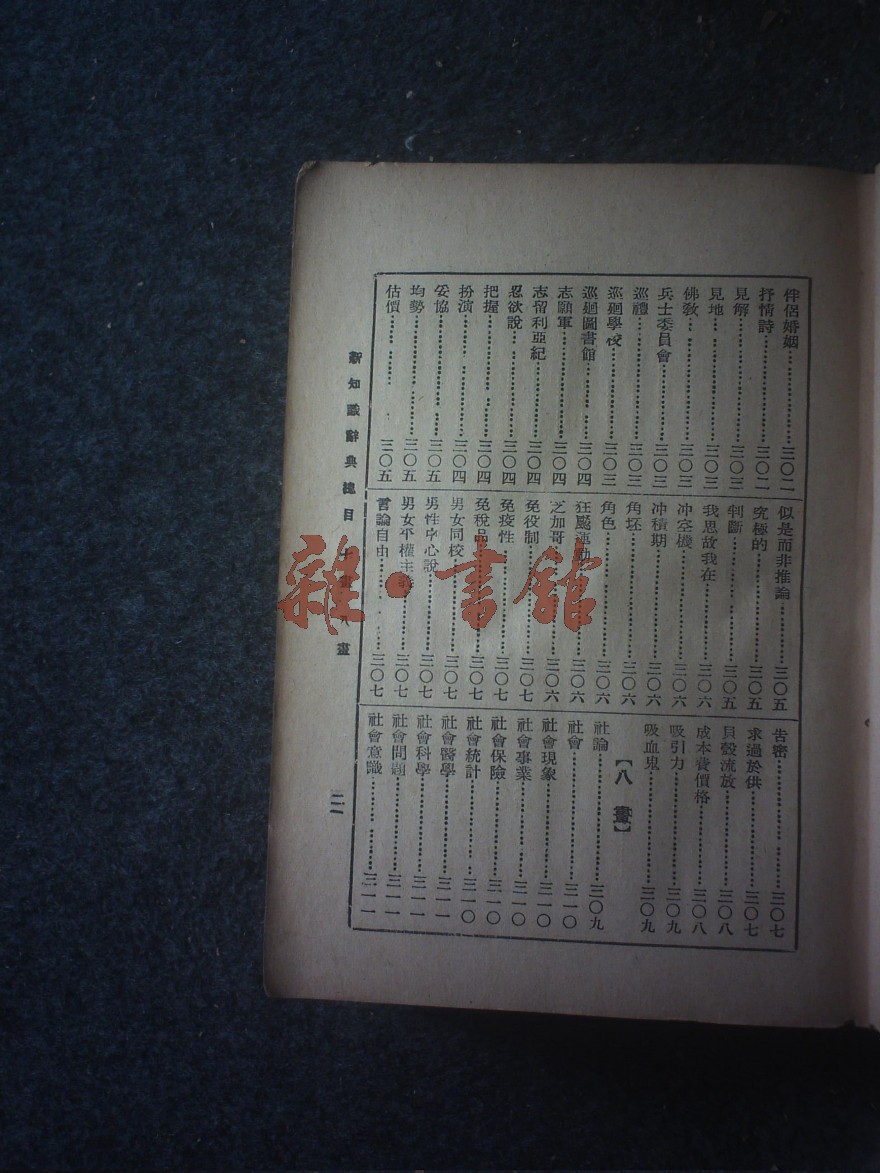 伴侶婚姻…………三〇二
抒情詩…………三〇二
見解…………三〇三
見地…………三〇三
佛敎…………三〇三
兵士委員會…………三〇三
巡禮…………三〇三
巡廻學校…………三〇三
巡廻圖書館…………三〇四
志願軍…………三〇四
志留利亞紀…………三〇四
忍欲說…………三〇四
把握…………三〇四
扮演…………三〇四
妥協…………三〇五
均勢…………三〇五
估價…………三〇五
似是而非推論…………三〇五
究極的…………三〇五
判斷…………三〇五
我思故我在…………三〇六
冲空機…………三〇六
冲積期…………三〇六
角坯…………三〇六
角色…………三〇六
狂飈運動…………三〇六
芝加哥…………三〇六
免役制…………三〇七
免疫性…………三〇七
免稅品…………三〇七
男女同校…………三〇七
男性中心說…………三〇七
男女平權主…………三〇七
言論自由…………三〇七
吿密…………三〇七
求過於供…………三〇七
貝殼流放…………三〇八
成本費價格…………三〇八
吸引力…………三〇九
吸血鬼…………三〇九
【八畫】
社論…………三〇九
社會…………三一〇
社會現象…………三一〇
社會事業…………三一〇
社會保險…………三一〇
社會統計…………三一〇
社會醫學…………三一一
社會科學…………三一一
社會問題…………三一一
社會意識…………三一一
新知識辭典總目
八畫
二一
雜·書館